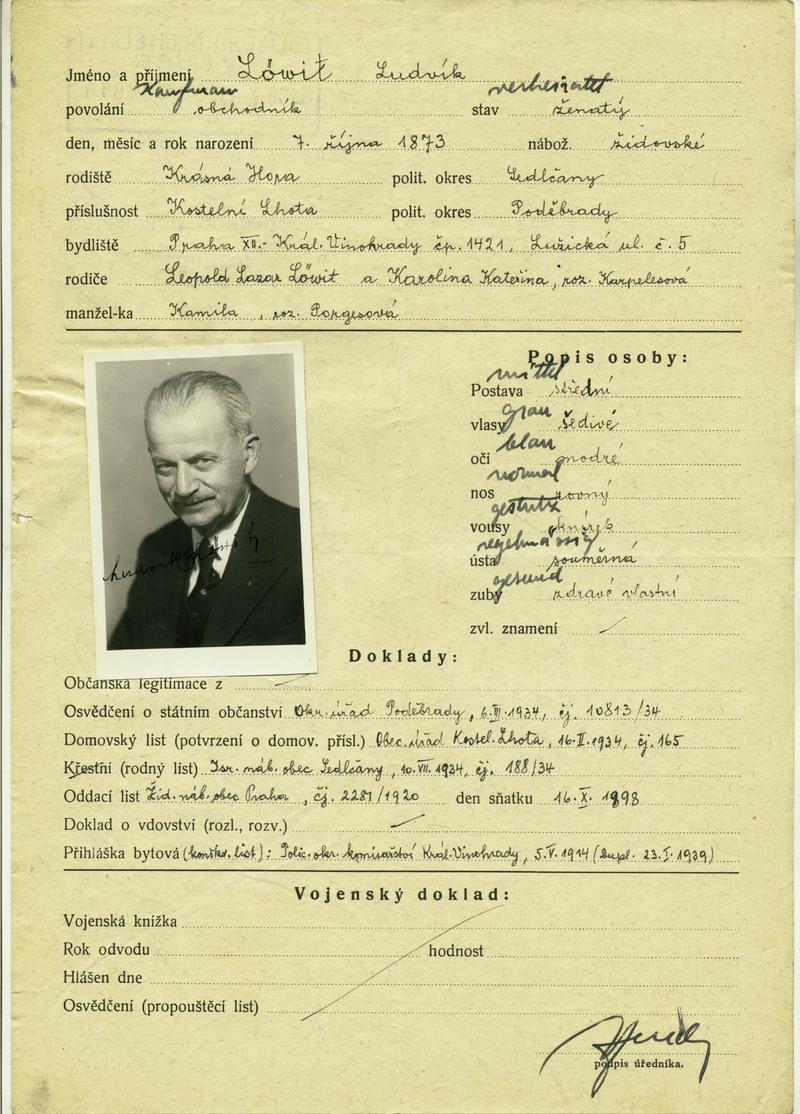 Jméno a příjmení Löwit Ludvík
Kaufman verheiratet
povolání obchodník stav ženatý
den, měsíc a rok narození 7. října 1873 nábož. židovské
rodiště Krásná Hora polit. okres Sedlčany
příslušnost Kostelní Lhota polit. okres Poděbrady
bydliště Praha XII.- Král. Vinohrady čp. 1421, Lužická ul. č. 5
rodiče Leopold Lazar Löwit a Karolina Kateřina, roz. Karpelesová
manžel-ka Kamila, roz. Porgesová
Popis osoby:
mittel
Postava střední
grau
vlasy šedivé
blau
oči modré
normal
nos rovný
gestutzt
vousy knírek
regelmässig
ústa souměrná
gesund
zuby zdravé vlastní
zvl. znamení
Doklady:
Občanská legitimace z
Osvědčení o státním občanství Okr. úřad Poděbrady, 6.III.1934, čj. 10813/34
Domovský list (potvrzení o domov. přísl.) Obec. úřad Kostel. Lhota, 16.II.1934, čj. 165
Křestní (rodný list) Isr. náb. obec Sedlčany, 10.VII.1934, čj. 188/34
Oddací list Žid. náb. obec Praha, čj. 2281/1920 den sňatku 16.X.1898
Doklad o vdovství (rozl., rozv.)
Přihláška bytová (konskr. list): Polic. okr. komisařství Král. Vinohrady, 5.V.1914 (Dupl. 23.I.1939)
Vojenský doklad:
Vojenská knížka
Rok odvodu hodnost
Hlášen dne
Osvědčení (propouštěcí list)
podpis úředníka.